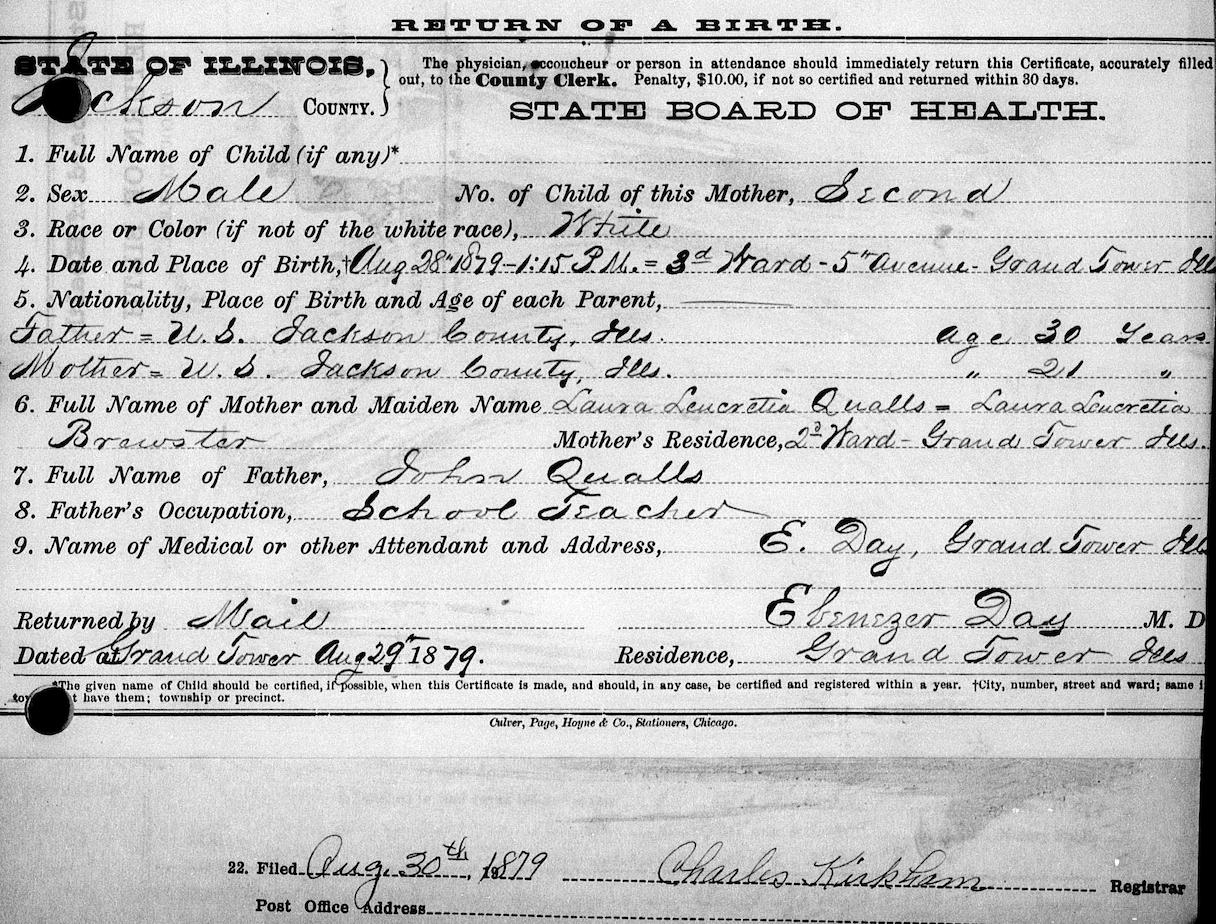 RETURN OF A BIRTH.
STATE OF ILLINOIS, The physician, accoucheur or person in attendance should immediately return this Certificate, accurately filled
out, to the County Clerk. Penalty, $10.00, if not so certified and returned within 30 days.
Jackson COUNTY. STATE BOARD OF HEALTH.
1. Full Name of Child (if any)*
2. Sex Male No. of Child of this Mother, Second
3. Race or Color (if not of the white race), White
4. Date and Place of Birth,† Aug 28th 1879 - 1:15 P.M. = 3d Ward - 5th Avenue - Grand Tower Ills
5. Nationality, Place of Birth and Age of each Parent,
Father = U.S. Jackson County, Ills. Age 30 Years
Mother = U.S. Jackson County, Ills. " 21 "
6. Full Name of Mother and Maiden Name Laura Leucretia Qualls = Laura Leucretia
Brewster Mother's Residence, 2d Ward - Grand Tower Ills.
7. Full Name of Father, John Qualls
8. Father's Occupation, School Teacher
9. Name of Medical or other Attendant and Address, E. Day, Grand Tower Ills
Returned by Mail Ebenezer Day M. D
Dated at Grand Tower Aug 29th 1879. Residence, Grand Tower Ills
*The given name of Child should be certified, if possible, when this Certificate is made, and should, in any case, be certified and registered within a year. †City, number, street and ward; same i
t have them; township or precinct.
Culver, Page, Hoyne & Co., Stationers, Chicago.
22. Filed Aug. 30th, 1879 Charles Kirkham Registrar
Post Office Address